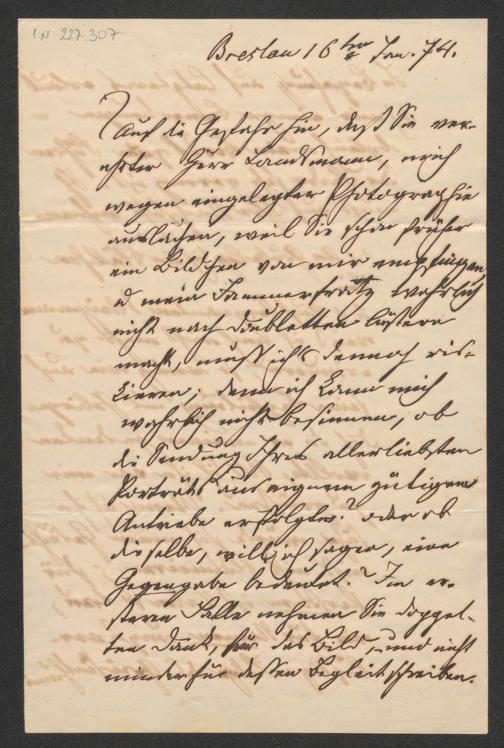 I.N. 227.307
Breslau 16ten Jan. 74.
Auf die Gefahr hin, daß Sie ver-
ehrter Herr Landsmann, mich
wegen eingelegter Photographie
auslachen, weil Sie schon früher
ein Bildchen von mir empfingen,
u mein Jammerfratz wahrlich
nicht nach Doubletten lüstern
macht, muß ich's dennoch ris-
kieren; denn ich kann mich
wahrlich nicht besinnen, ob
die Sendung Ihres allerliebsten
Porträts aus eignem gütigem
Antriebe erfolgte? oder ob
dieselbe, will ich sagen, eine
Gegengabe bedeutet? Im er-
steren Falle nehmen Sie doppel-
ten Dank, für das Bild, und nicht
minder für dessen Begleitschreiben.